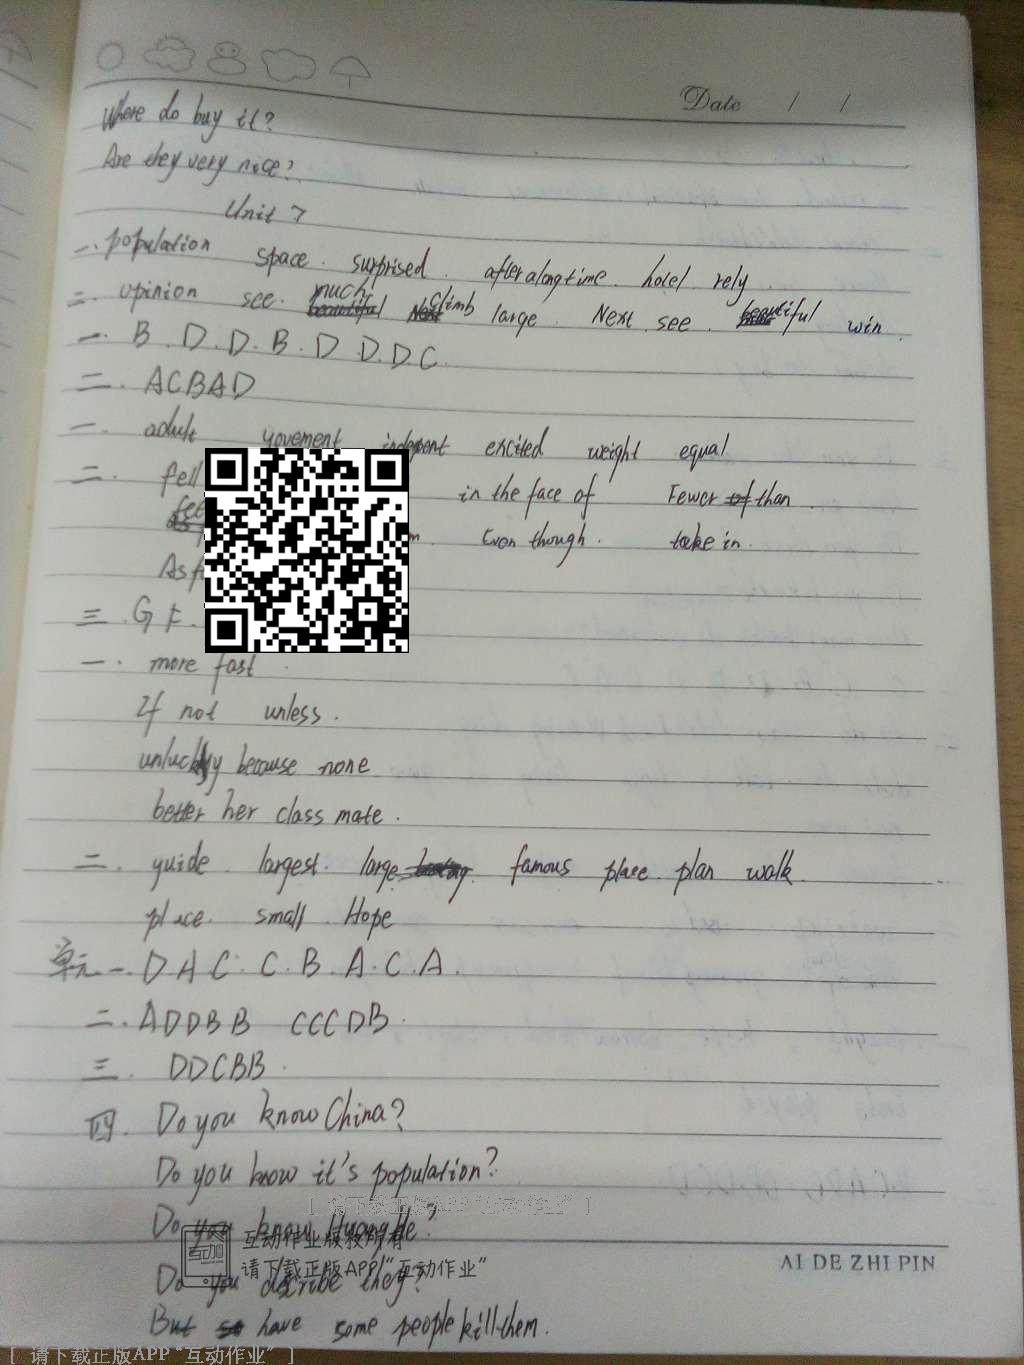 Date / /
Where do buy it?
Are they very nice?
Unit 7
一. population space. surprised. after a long time. hotel rely
二. opinion see. much climb large. Next see. beautiful win.
一. B. D. D. B. D D. D. C.
二. ACBAD
一. adult yovement excited weight equal
二. fell in the face of Fewer than
Even though. take in.
As
三. G F.
一. more fast
If not unless.
unlucky because none
better her class mate.
二. guide. largest. large famous place. plan walk
place. small. Hope
单元一. D A C. C. B. A. C. A.
二. ADDBB CCCDB.
三. DDCBB.
四. Do you know China?
Do you know it's population?
[ 请下载正版APP“互动作业” ]
Do you know Huanghe?
互动作业版权所有
互动
请下载正版APP“互动作业”
AI DE ZHI PIN
Do you describe they?
But have some people kill them.
[ 请下载正版APP“互动作业” ]